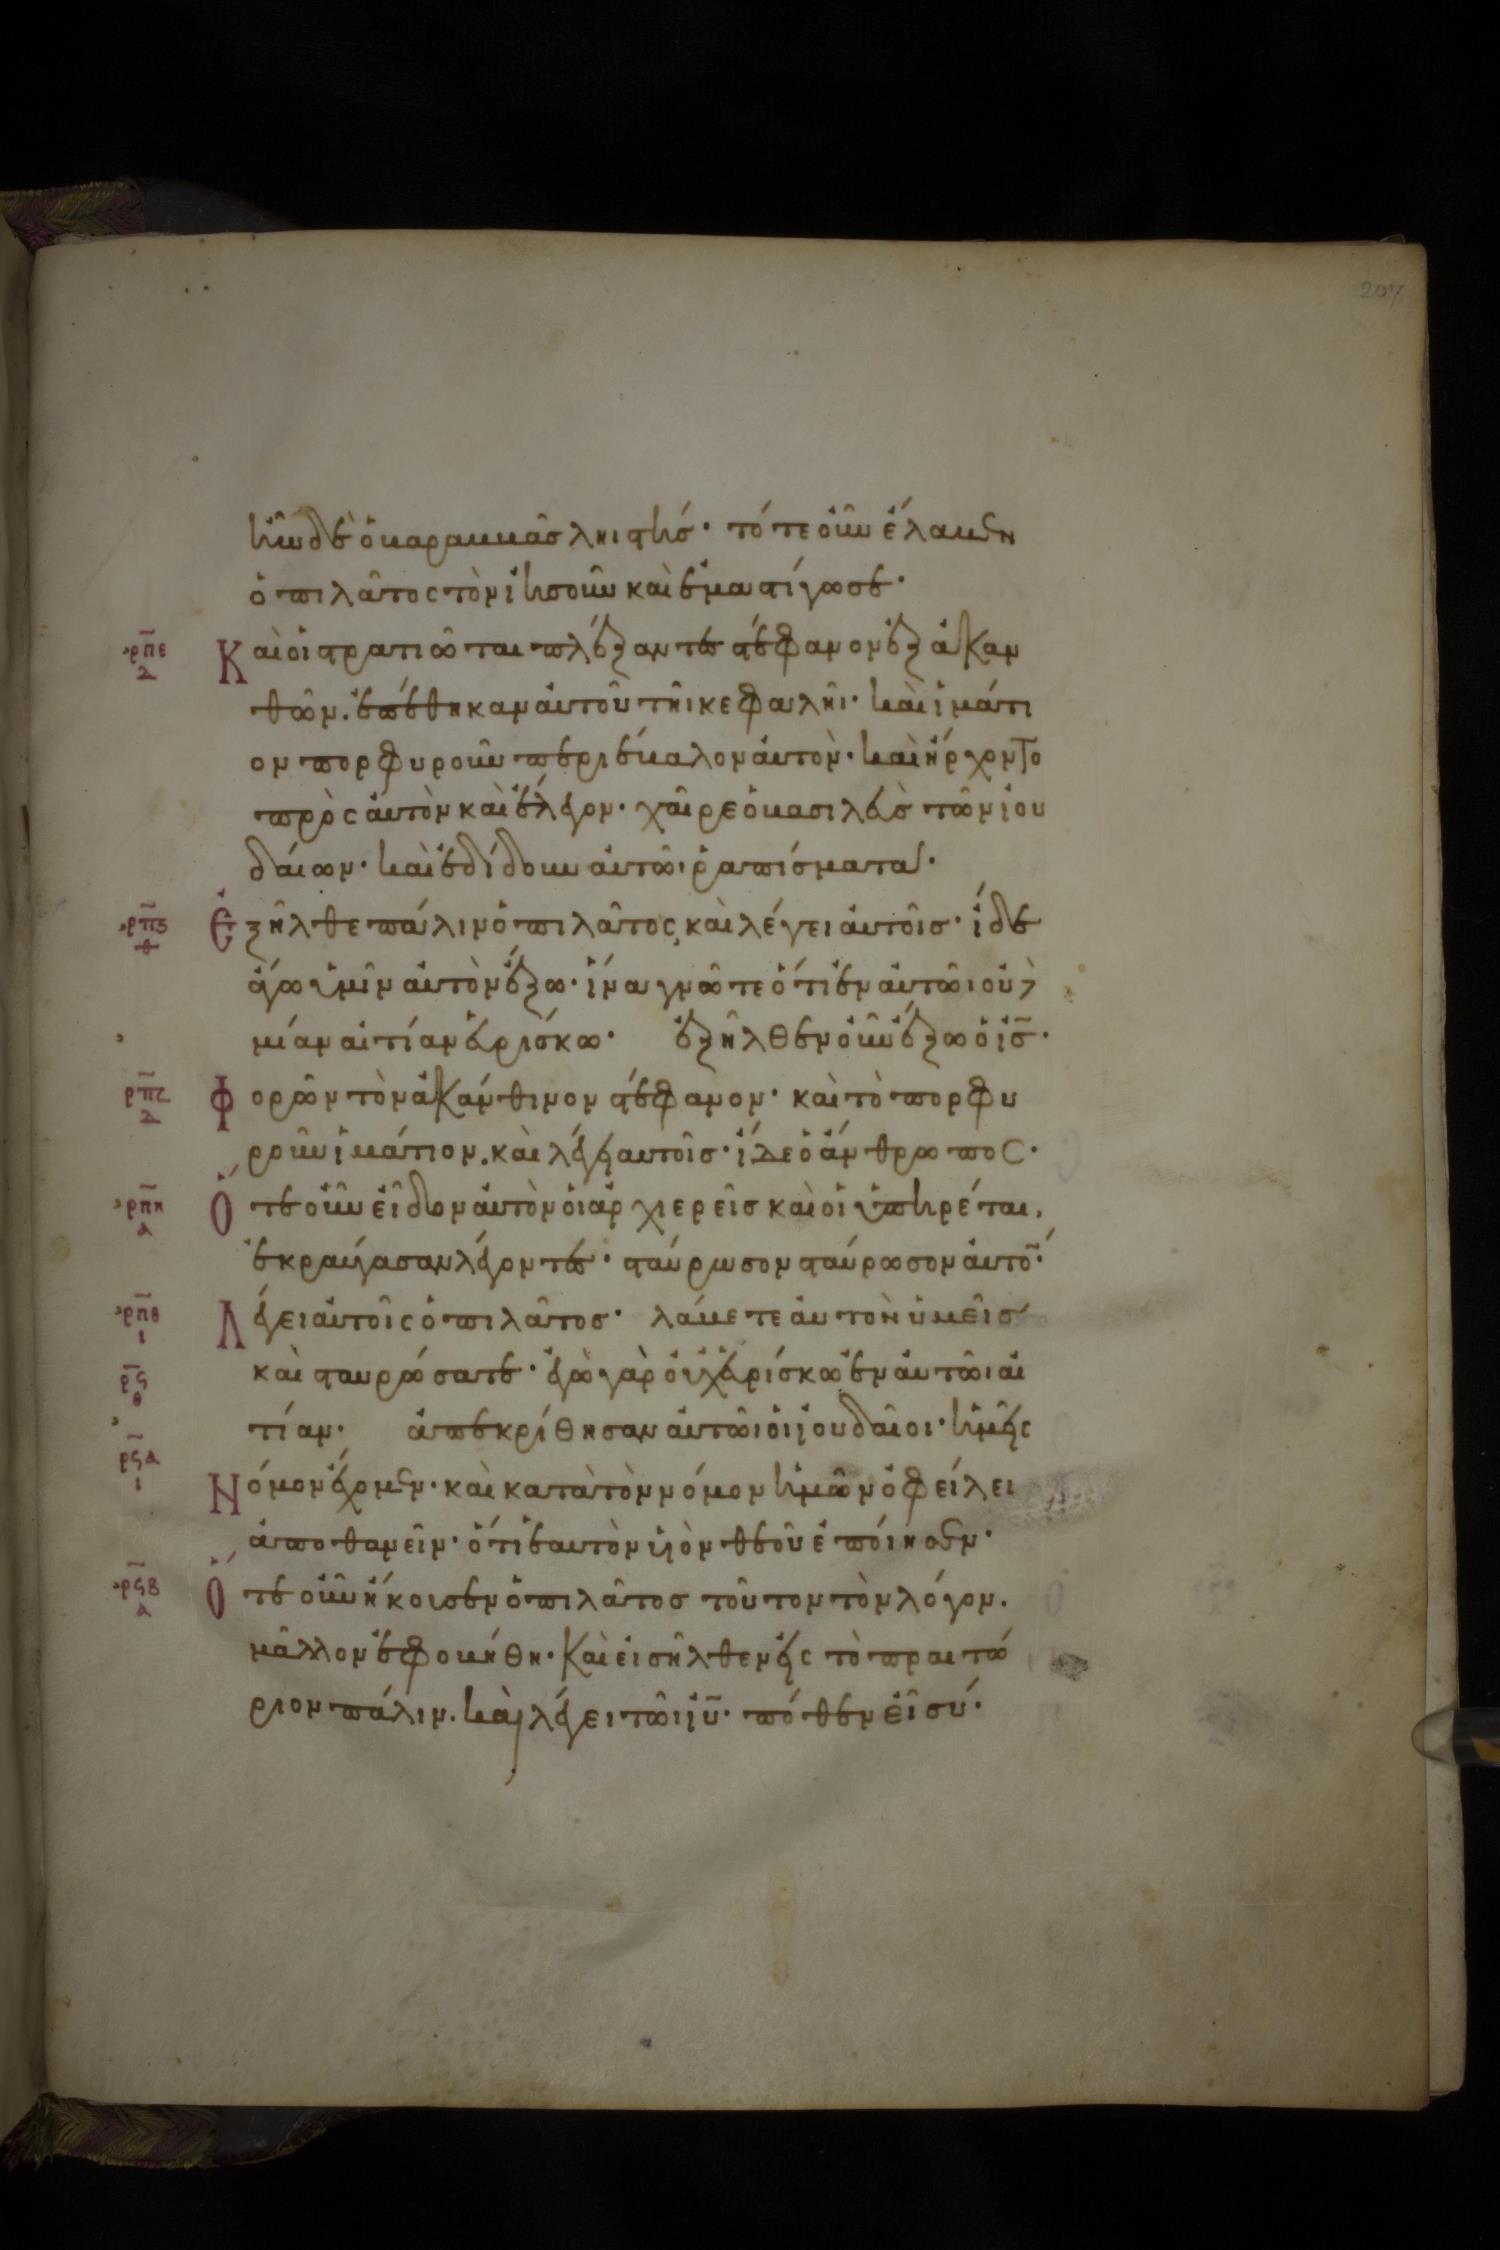 207
ἦν δὲ ὁ βαραββᾶσ ληιστήσ· τότε οὖν ἔλαβεν
ὁ πιλᾶτος τὸν ἰησοῦν καὶ ἐμαστίγωσε·
ρπε
Καὶ οἱ στρατιῶται πλέξαντες στέφανον ἐξ ἀκαν
θῶν. ἐπέθηκαν αὐτοῦ τῆι κεφαλῆι· καὶ ἱμάτι
ον πορφυροῦν περιέβαλον αὐτὸν· καὶ ἤρχοντο
πρὸς αὐτὸν καὶ ἔλεγον· χαῖρε ὁ βασιλεὺσ τῶν ἰου
δαίων· καὶ ἐδίδουν αὐτῶι ῥαπίσματα·
ρπς
Ἐξῆλθε πάλιν ὁ πιλᾶτος, καὶ λέγει αὐτοῖσ· ἴδε
ἄγω ὑμῖν αὐτὸν ἔξω· ἵνα γνῶτε ὅτι ἐν αὐτῶι οὐ
μίαν αἰτίαν εὑρίσκω· ἐξῆλθεν οὖν ἔξω ὁ ις·
ρπζ
Φορῶν τὸν ἀκάνθινον στέφανον· καὶ τὸ πορφυ
ροῦν ἱμάτιον. καὶ λέγει αυτοῖσ· ἴδε ὁ ἄνθρωπος·
ρπη α
Ὅτε οὖν εἶδον αὐτὸν οἱ ἀρχιερεῖσ καὶ οἱ ὑπηρέται.
ἐκραύγασαν λέγοντες· σταύρωσον σταύρωσον αὐτό·
ρπθ ι
Λέγει αὐτοῖς ὁ πιλᾶτοσ· λάβετε αυτὸν ὑμεῖσ
ρϟ θ
καὶ σταυρώσατε· ἐγὼ γὰρ οὐχ εὑρίσκω ἐν αὐτῶι αἰ
τίαν· ἀπεκρίθησαν αὐτῶι οἱ ἰουδαῖοι· ἡμεῖς
ρϟα ι
Νόμον ἔχομεν· καὶ κατὰ τὸν νόμον ἡμῶν ὀφείλει
ἀποθανεῖν· ὅτι ἑαυτὸν υἱὸν θεοῦ ἐποίησεν·
ρϟβ α
Ὅτε οὖν ἤκουσεν ὁ πιλᾶτοσ τοῦτον τὸν λόγον.
μᾶλλον ἐφοβήθη· Καὶ εἰσῆλθεν εἰς τὸ πραιτώ
ριον πάλιν. καὶ λέγει τῶι ιυ· πόθεν εἶ σύ·